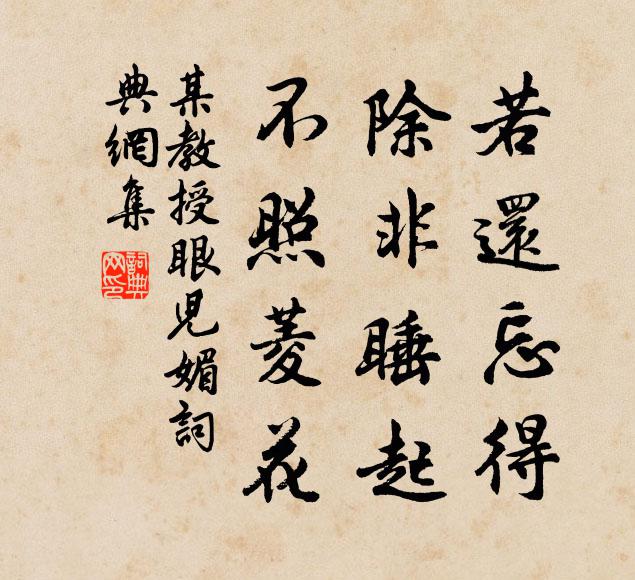 若還忘得
除非睡起
不照菱花
某教授眼児媚詞
典網集
詞典
网印